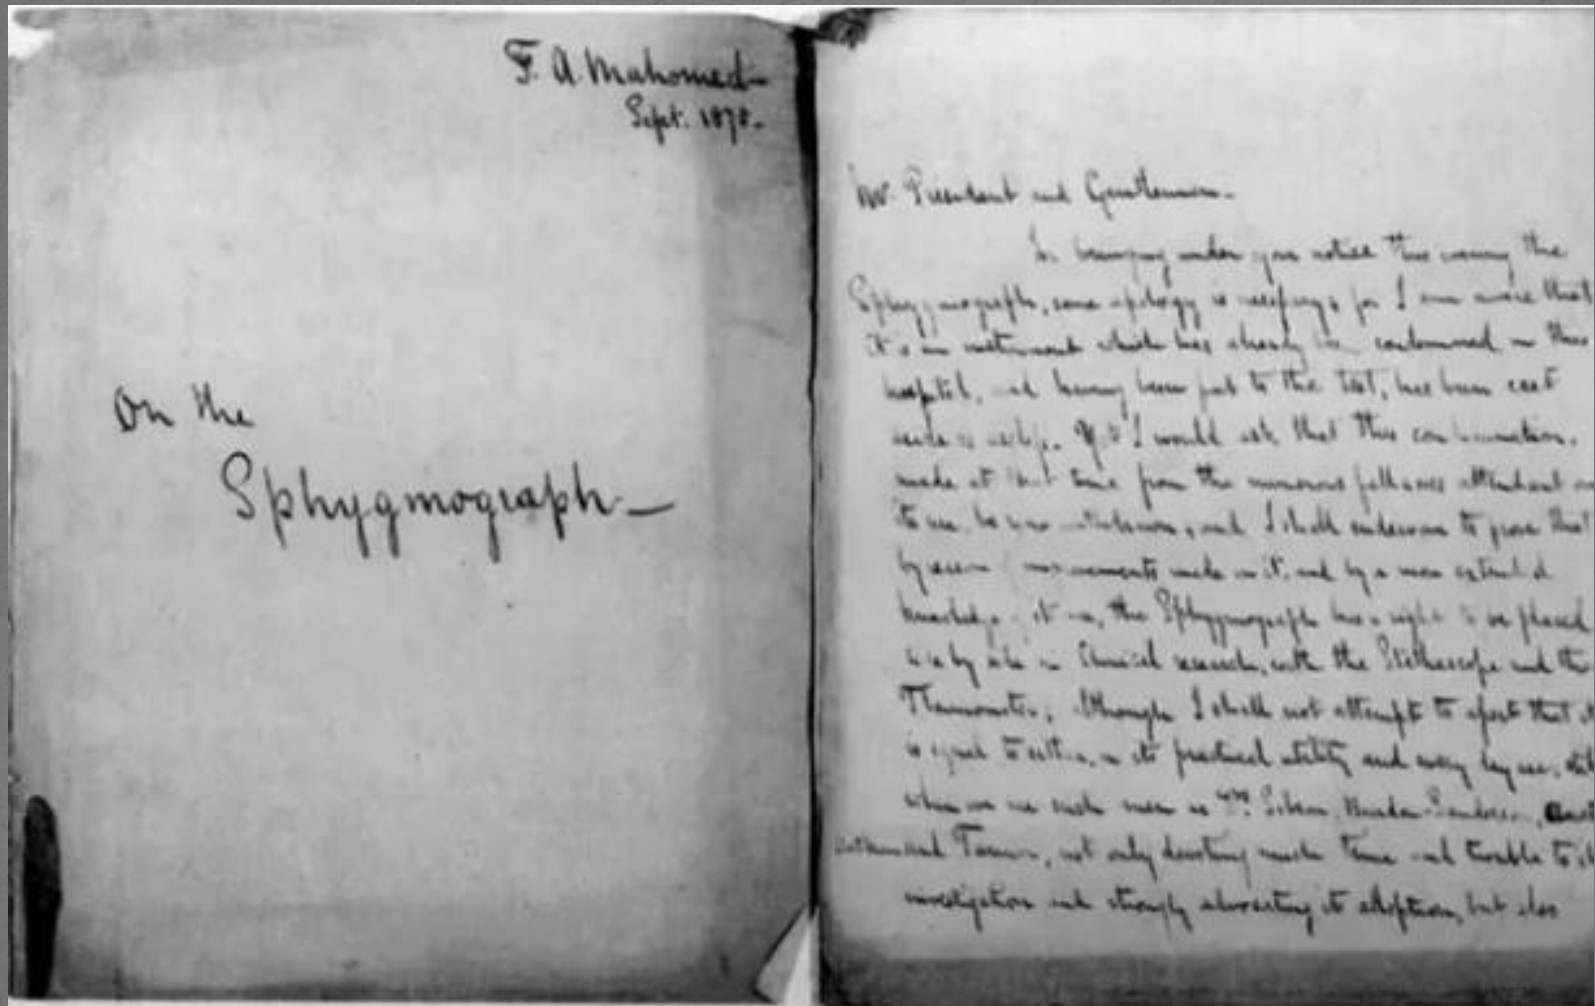 F. A. Mahomed
Sept. 187
On the
Sphygmograph
Mr. President and Gentlemen.
In bringing under your notice this evening the
Sphygmograph, some apology is necessary, for I am aware that
it is an instrument which has already been condemned in this
hospital, and having been put to the test, has been cast
aside as useless. I would ask that this condemnation,
made at that time from the numerous fallacies attendant on
its use, be now withdrawn, and I shall endeavour to prove that
by made in it, and by a more extended
knowledge of its use, the Sphygmograph has a right to be placed
side by side in Clinical research, with the Stethoscope and the
Thermometer; although I shall not attempt to assert that it
is equal to either, in its practical utility and every day use, still
when we see such men as Burdon-Sanderson,
and not only devoting much time and trouble to its
investigation and strongly advocating its adoption, but also